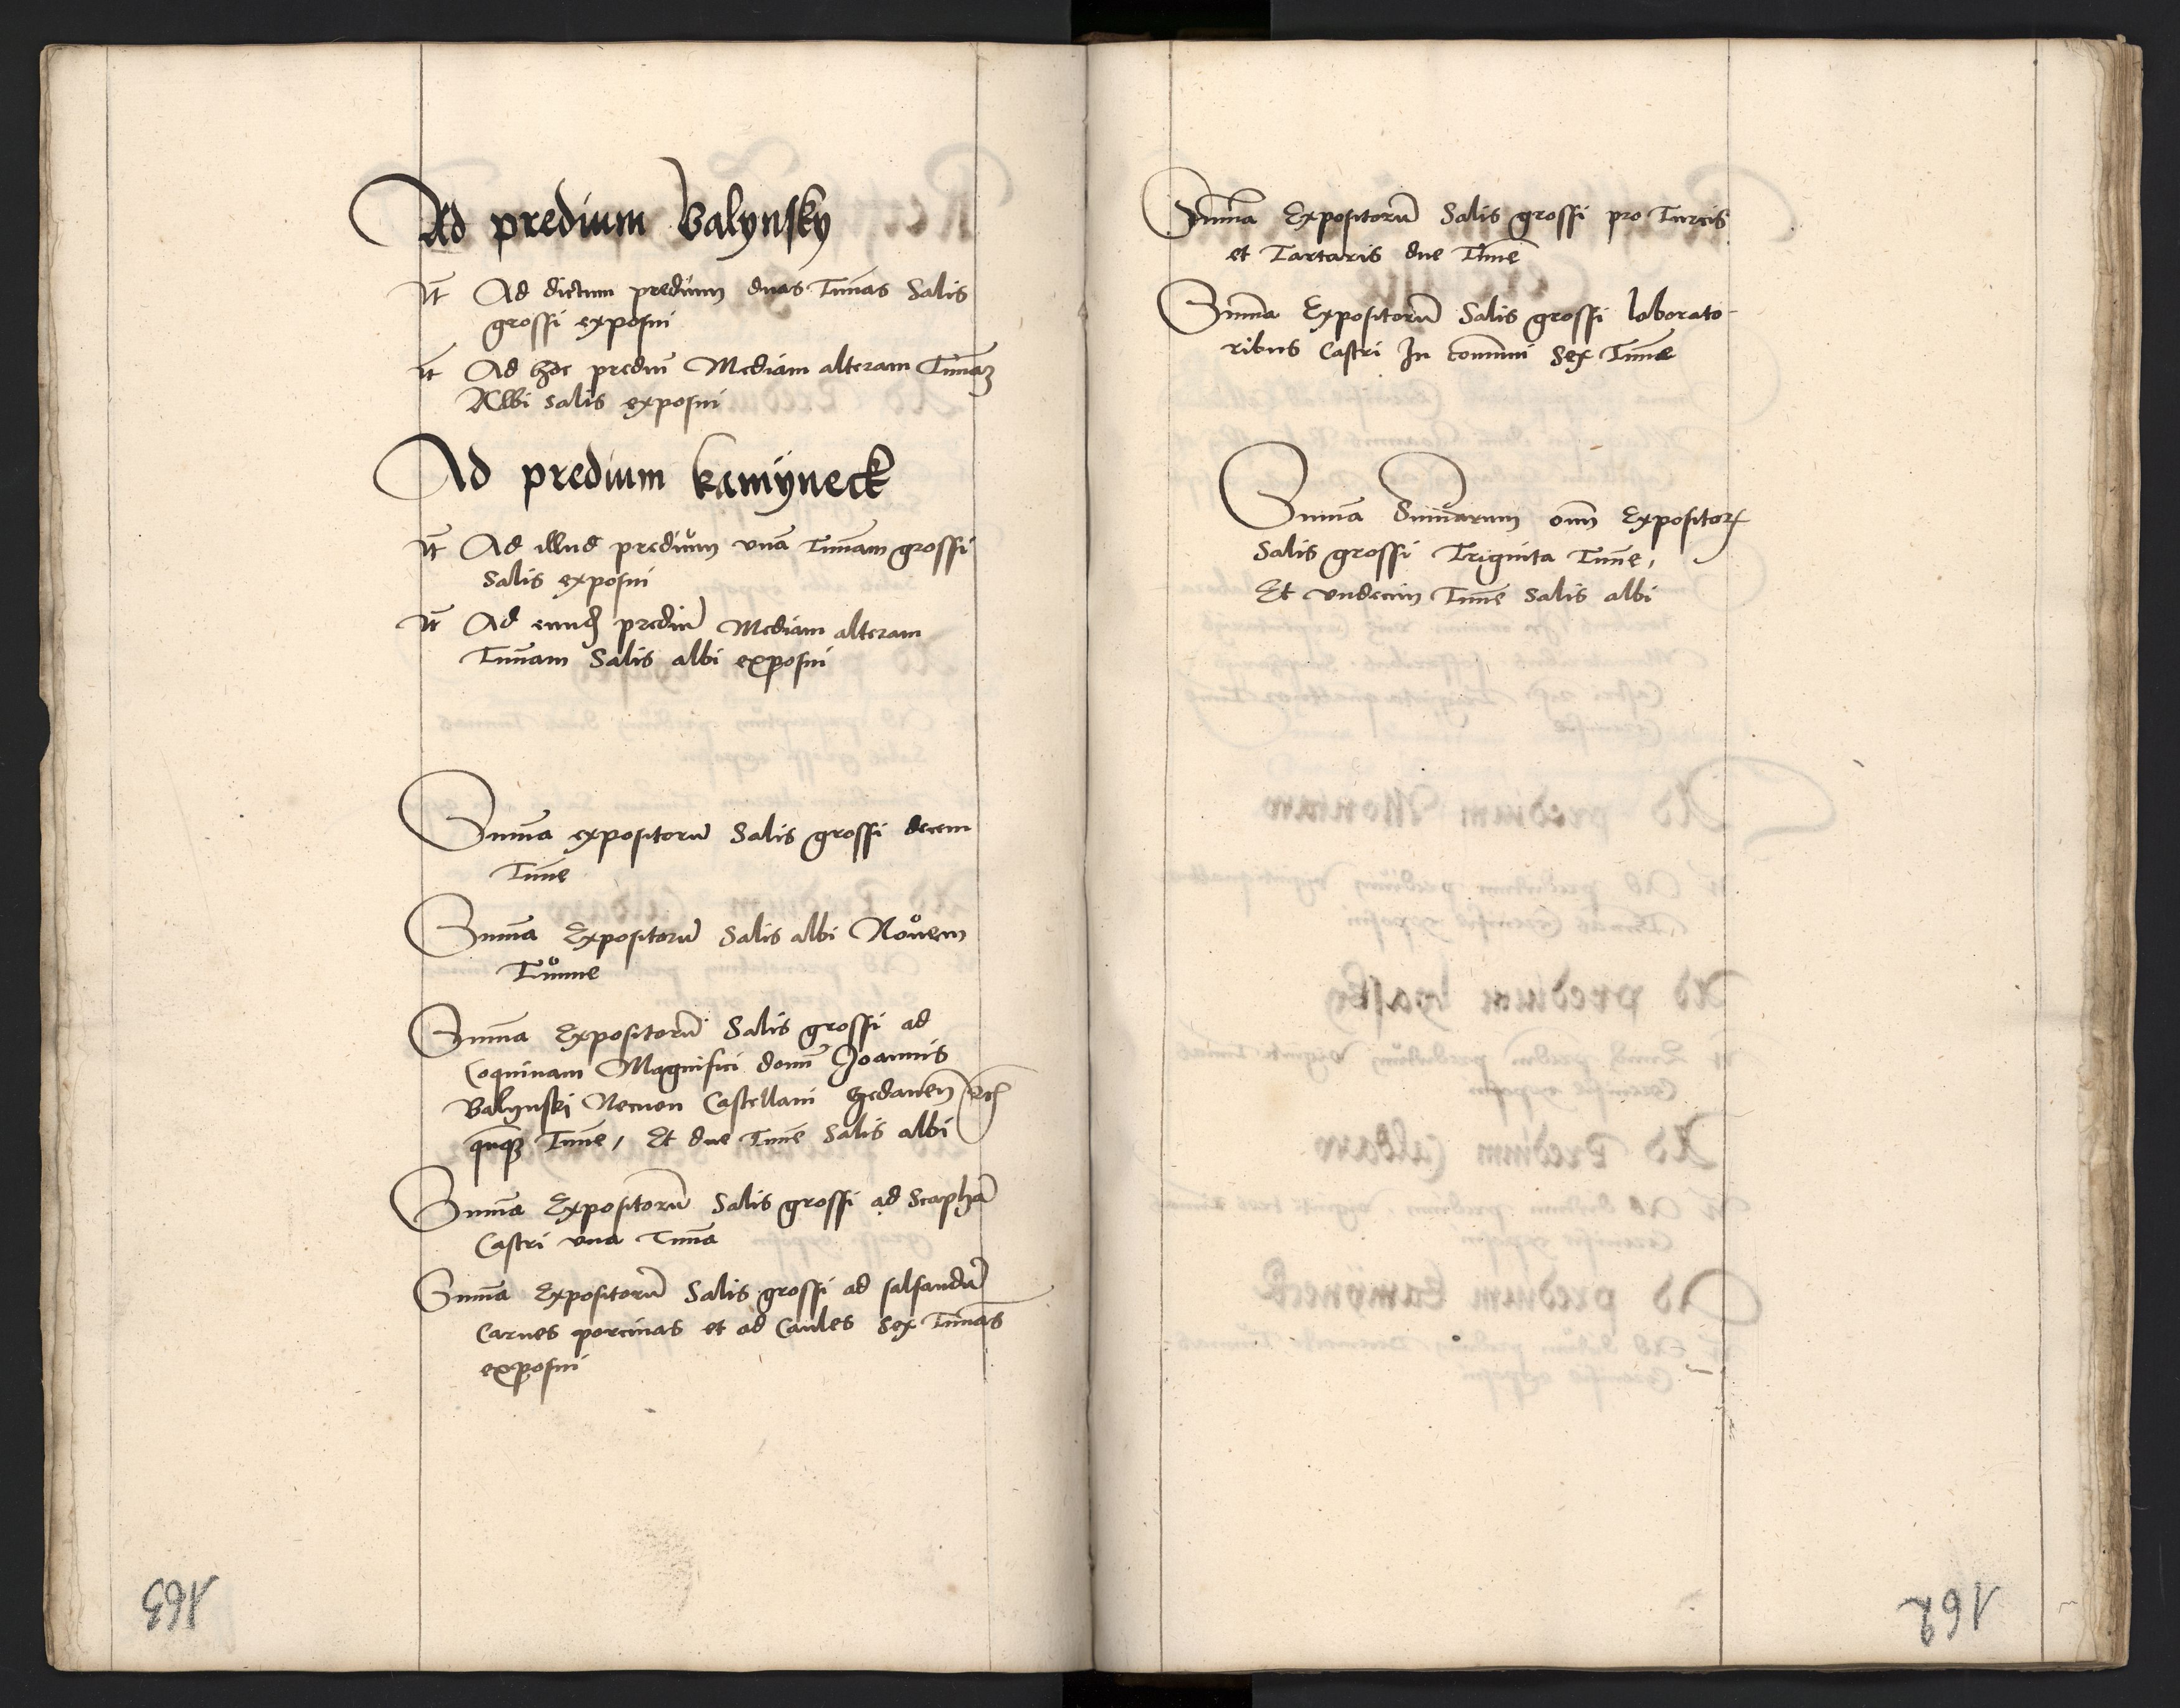 Ad predium Balynsky
It Ad dictum predium duas Tunnas Salis
grossi exposui
It Ad hoc prediu Mediam alteram Tunnaz
Albi salis exposui
Ad predium kamÿneck
It Ad illud prediům vna Tunnam grossi
Salis exposui
It Ad eund prediu Mediam alteram
Tunnam Salis albi exposui
Suma expositoru Salis grossi decem
Tune
Suma Expositoru Salis albi Nouem
Tunne
Suma Expositoru Salis grossi ad
Coquinam Magnifici domi Joannis
Balynski Necnon Castellani Gedanen etc
quiqz Tune, Et due Tune Salis albi
Suma Expositoru Salis grossi ad Scapha
Castri vna Tuna
Suma Expositoru Salis grossi ad salsandu
Carnes porcinas et ad Caules Sex Tunnas
exposui
163
Suma Expositoru Salis grossi pro Turcis
et Tartaris due Tune
Suma Expositoru Salis grossi laborato-
ribus Castri In comuni Sex Tune
Suma Sumarum omn Expositor
Salis grossi Triginta Tune,
Et vndecim Tune Salis albi
162